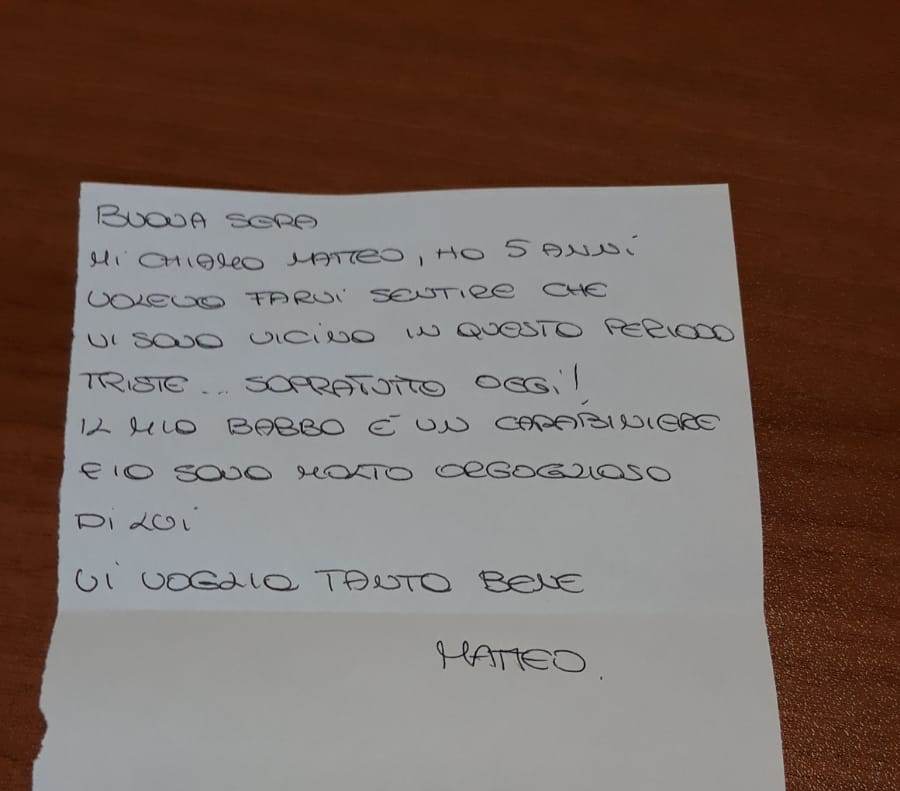 BUONA SERA
MI CHIAMO MATTEO, HO 5 ANNI
VOLEVO FARVI SENTIRE CHE
VI SONO VICINO IN QUESTO PERIODO
TRISTE... SOPRATUTTO OGGI!
IL MIO BABBO È UN CARABINIERE
E IO SONO MOLTO ORGOGLIOSO
DI LUI
VI VOGLIO TANTO BENE
MATTEO.